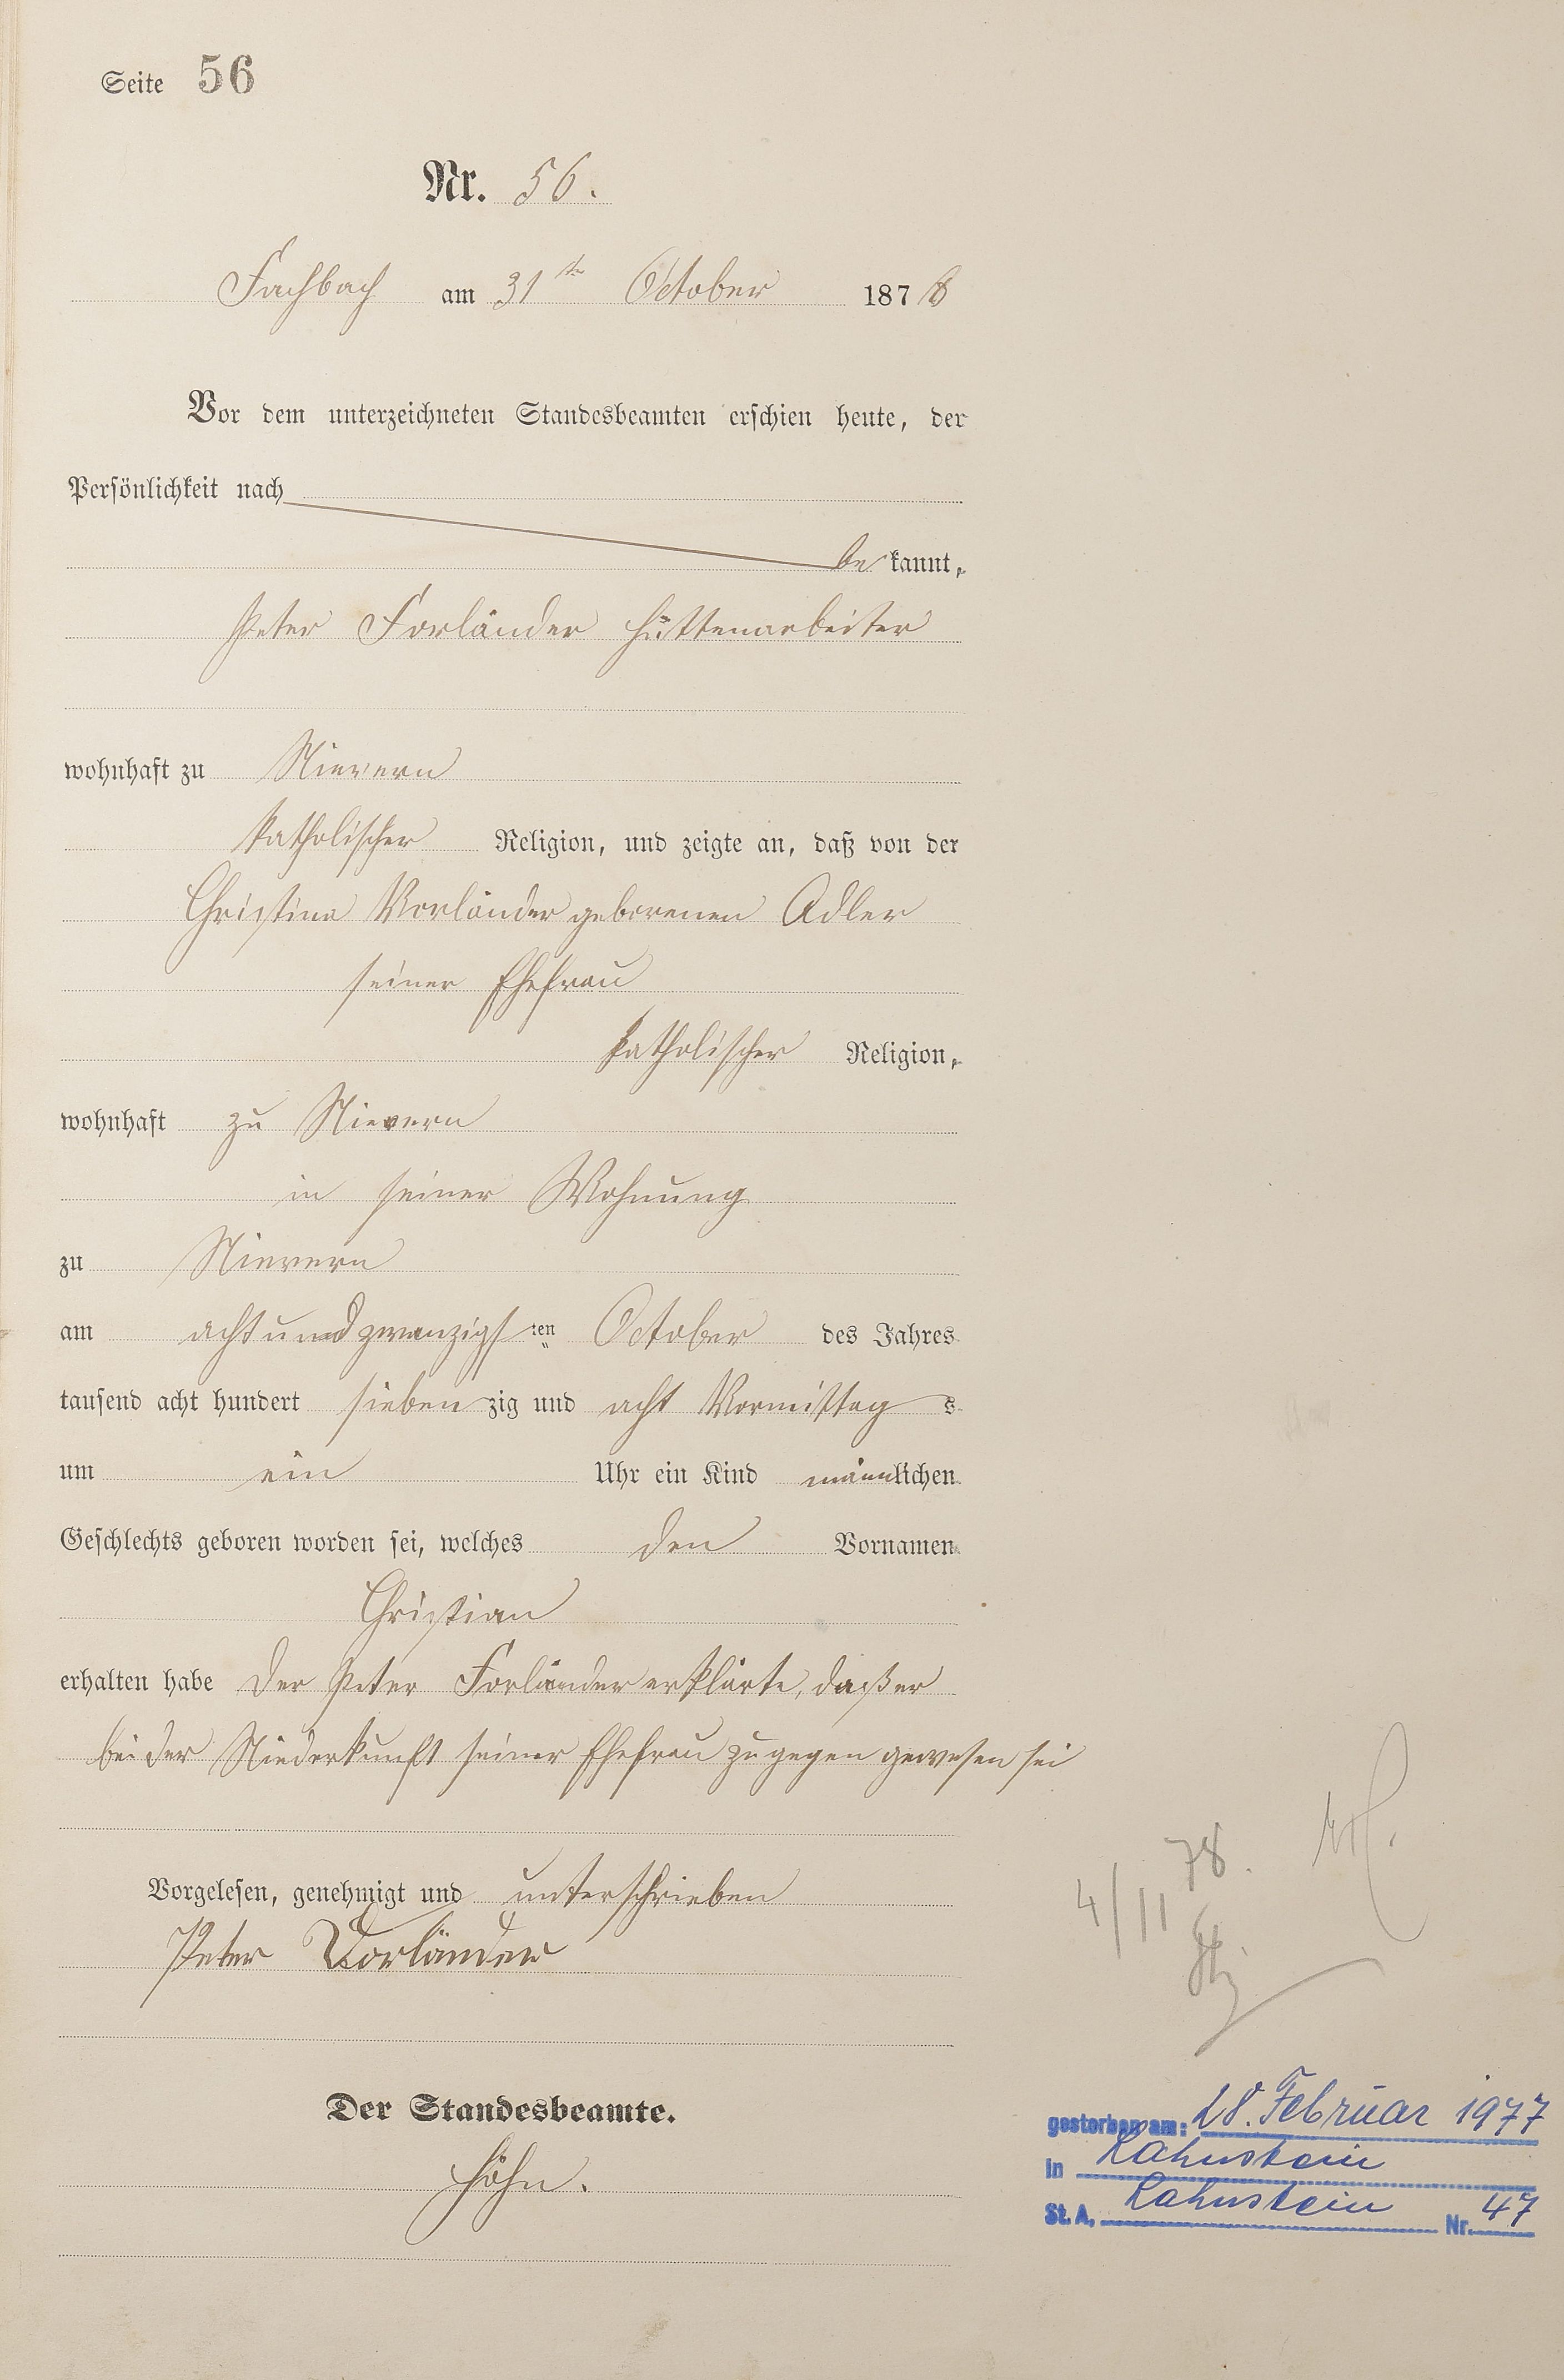 Seite 56
Nr. 56.
Fachbach am 31ten October 1878
Vor dem unterzeichneten Standesbeamten erschien heute, der
Persönlichkeit nach
bekannt,
Peter Forländer Hüttenarbeiter
wohnhaft zu Nievern
katholischer Religion, und zeigte an, daß von der
Christina Vorländer geborenen Adler
seiner Ehefrau
katholischer Religion,
wohnhaft zu Nievern
in seiner Wohnung
zu Nievern
am achtundzwanzigsten October des Jahres
tausend acht hundert siebenzig und acht Vormittags
um ein Uhr ein Kind männlichen
Geschlechts geboren worden sei, welches den Vornamen
Christian
erhalten habe Der Peter Forländer erklärte, daß er
bei der Niederkunft seiner Ehefrau zugegen gewesen sei
Vorgelesen, genehmigt und unterschrieben
Peter Vorländer
Der Standesbeamte.
Höhn.
4/11 78.
gestorben am: 28. Februar 1977
in Lahnstein
St. A. Lahnstein Nr. 47